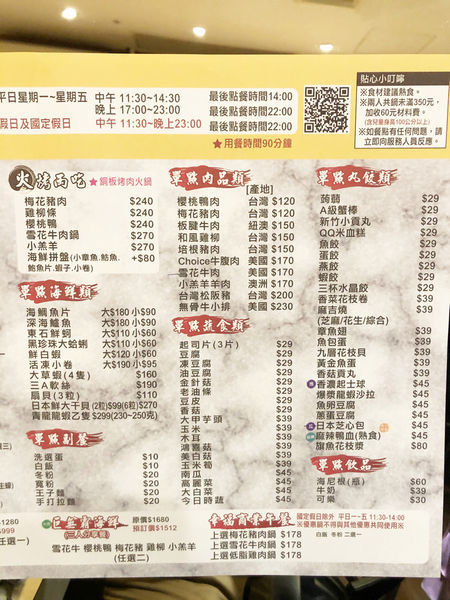 平日星期一~星期五 中午 11:30~14:30 最後點餐時間14:00
晚上 17:00~23:00 最後點餐時間22:00
假日及國定假日 中午 11:30~晚上23:00 最後點餐時間22:00
★用餐時間90分鐘
貼心小叮嚀
※食材建議熟食。
※兩人共鍋未滿350元，
加收60元材料費。
(含兒童身高100公分以上)
※如餐點有任何問題，請
立即向服務人員反應。
火烤兩吃 ★銅板烤肉火鍋
梅花豬肉 $240
雞柳條 $240
櫻桃鴨 $240
雪花牛肉鍋 $270
小羔羊 $270
海鮮拼盤(小章魚.鮯魚. +$80
鮑魚片.蝦子.小卷)
單點海鮮類
海鯛魚片 大$180小$90
深海鱸魚 大$180小$90
東石鮮蚵 大$110小$60
黑珍珠大蛤蜊 大$110小$60
鮮白蝦 大$120小$60
活凍小卷 大$190小$95
大草蝦(4隻) $160
三A軟絲 $190
扇貝(3粒) $110
日本鮮大干貝(2粒)$99(6粒)$270
青龍龍蝦乙隻 $299(230~250克)
單點副餐
洗選蛋 $10
白飯 $10
冬粉 $20
寬粉 $20
王子麵 $20
手打拉麵 $20
單點肉品類
[產地]
櫻桃鴨肉 台灣 $120
梅花豬肉 台灣 $120
板腱牛肉 紐澳 $150
和風雞柳 台灣 $150
培根豬肉 台灣 $150
Choice牛腹肉 美國 $170
雪花牛肉 美國 $170
小羔羊羊肉 澳洲 $170
台灣松阪豬 台灣 $200
無骨牛小排 美國 $230
單點蔬食類
起司片(3片) $29
豆腐 $29
凍豆腐 $29
油豆腐 $29
金針菇 $29
老油條 $29
豆皮 $29
香菇 $29
大甲芋頭 $29
玉米 $29
木耳 $29
鴻喜菇 $29
美白菇 $29
玉米筍 $29
南瓜 $29
高麗菜 $45
大白菜 $45
今日時蔬 $45
單點丸餃類
蒟蒻 $29
A級蟹棒 $29
新竹小貢丸 $29
QQ米血糕 $29
魚餃 $29
蛋餃 $29
燕餃 $29
蝦餃 $29
三杯水晶餃 $29
香菜花枝卷 $39
麻吉燒 $39
(芝麻/花生/綜合)
章魚翅 $39
魚包蛋 $39
九層花枝貝 $39
黃金魚蛋 $39
香菇貢丸 $39
香濃起士球 $45
爆漿龍蝦沙拉 $45
魚卵豆腐 $45
蔥蛋豆腐 $45
日本芝心包 $45
麻辣鴨血(熱食) $45
旗魚花枝漿 $80
單點飲品
海尼根(瓶) $60
牛奶 $39
可樂 $30
$1280
$999
(任選一)
原價$1680
預訂價$1512
(三人分享餐)
雪花牛 櫻桃鴨 梅花豬 雞柳 小羔羊
(任選二)
幸福商業午餐 國定假日除外 平日一~五 11:30-14:00
※優惠鍋不得與其他優惠共同使用※
上選梅花豬肉鍋 $178 白飯 冬粉 二選一
上選雪花牛肉鍋 $178
上選低脂雞肉鍋 $178